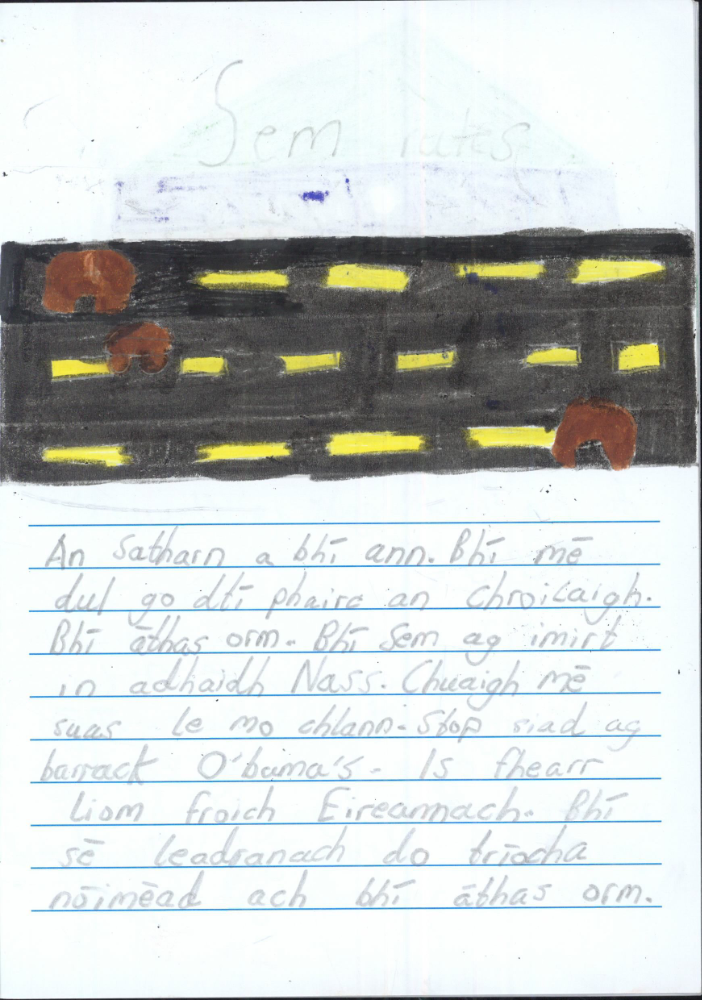 Sem
An Satharn a bhī ann. Bhī mē
dul go dtī phairc an chrōicaigh.
Bhī āthas orm. Bhī Sem ag imirt
in adhaidh Nass. Chuaigh mē
suas le mo chlann. Stop siad ag
barrack O'bama's. Is fhearr
liom froich Eireannach. Bhī
sē leadranach do trīocha
nōimēad ach bhī āthas orm.